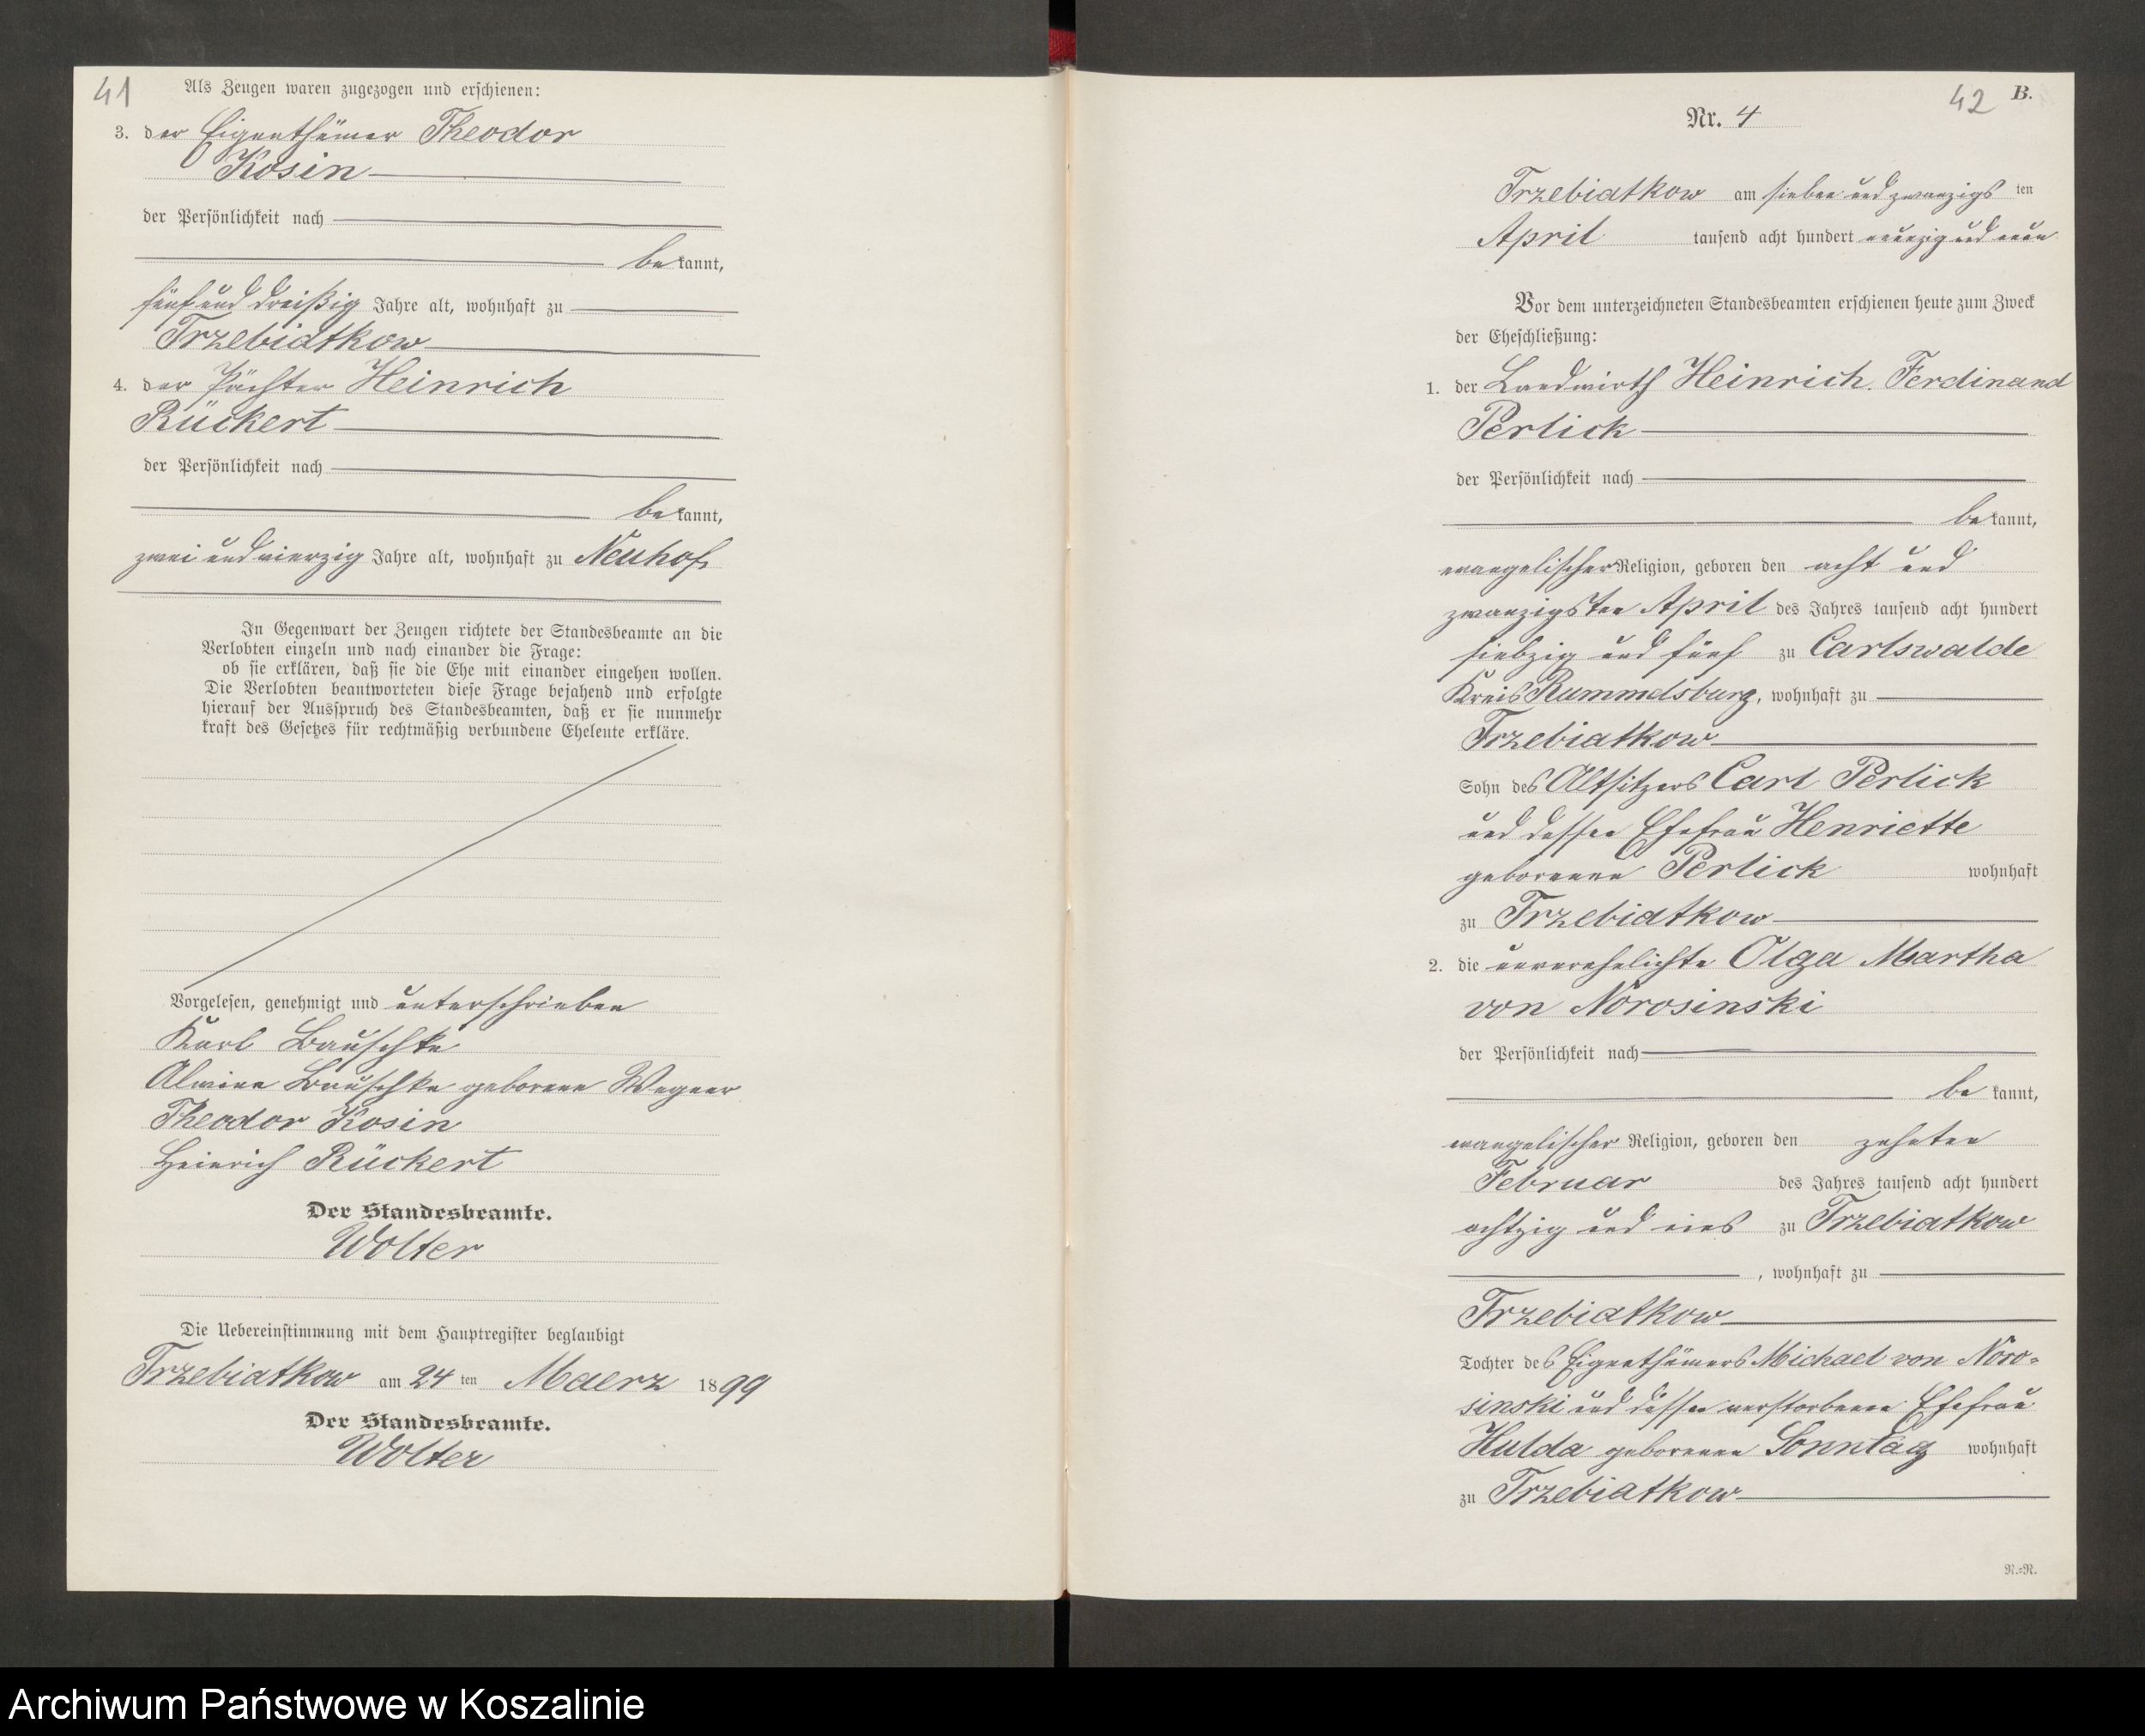 41
Als Zeugen waren zugezogen und erschienen:
3. der Eigenthümer Theodor
Kosin
der Persönlichkeit nach
bekannt,
fünf und dreißig Jahre alt, wohnhaft zu
Trzebiatkow
4. der Pächter Heinrich
Rückert
der Persönlichkeit nach
bekannt,
zwei und vierzig Jahre alt, wohnhaft zu Neuhof
In Gegenwart der Zeugen richtete der Standesbeamte an die
Verlobten einzeln und nach einander die Frage:
ob sie erklären, daß sie die Ehe mit einander eingehen wollen.
Die Verlobten beantworteten diese Frage bejahend und erfolgte
hierauf der Ausspruch des Standesbeamten, daß er sie nunmehr
kraft des Gesetzes für rechtmäßig verbundene Eheleute erkläre.
Vorgelesen, genehmigt und unterschrieben
Karl Bauschke
Alwine Bauschke geborene Wegner
Theodor Kosin
Heinrich Rückert
Der Standesbeamte.
Wolter
Die Uebereinstimmung mit dem Hauptregister beglaubigt
Trzebiatkow am 24 ten Maerz 1899
Der Standesbeamte.
Wolter
42 B.
Nr. 4
Trzebiatkow am sieben und zwanzigs ten
April tausend acht hundert neunzig und neun
Vor dem unterzeichneten Standesbeamten erschienen heute zum Zweck
der Eheschließung:
1. der Landwirth Heinrich Ferdinand
Perlick
der Persönlichkeit nach
bekannt,
evangelischer Religion, geboren den acht und
zwanzigsten April des Jahres tausend acht hundert
siebzig und fünf zu Carlswalde
Kreis Rummelsburg, wohnhaft zu
Trzebiatkow
Sohn des Altsitzers Carl Perlick
und dessen Ehefrau Henriette
geborenen Perlick wohnhaft
zu Trzebiatkow
2. die unverehelichte Olga Martha
von Norosinski
der Persönlichkeit nach
be kannt,
evangelischer Religion, geboren den zehnten
Februar des Jahres tausend acht hundert
achtzig und eins zu Trzebiatkow
, wohnhaft zu
Trzebiatkow
Tochter des Eigenthümers Michael von Noro-
sinski und dessen verstorbenen Ehefrau
Hulda geborenen Sonntag wohnhaft
zu Trzebiatkow
N.-N.
Archiwum Państwowe w Koszalinie